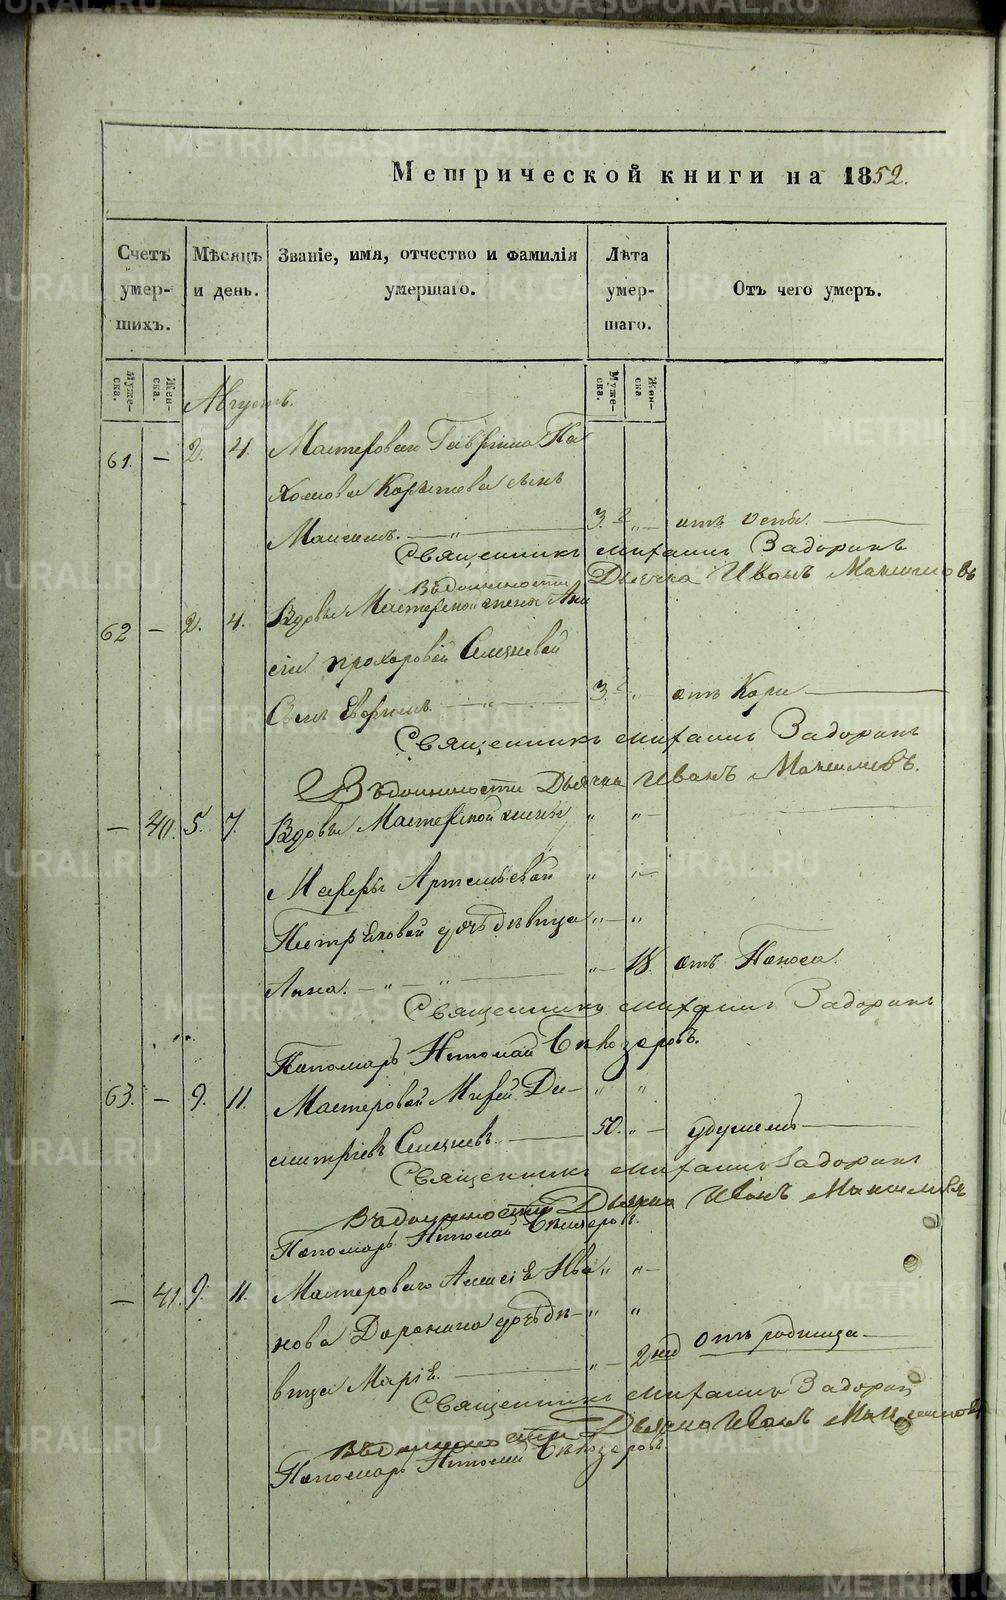 METRIKI.GASO-URAL.RU
Метрической книги на 1852.
Счетъ умер- шихъ.
Мѣсяцъ и день.
Званіе, имя, отчество и фамилія умершаго.
Лѣта умер- шаго.
Отъ чего умеръ.
Муже- ска.
Жен- ска.
Муже- ска.
Жен- ска
Августъ.
61. — 2. 4. Мастероваго Гаврила Па
хомова сынъ
Максимъ. — „ — 3. „ — отъ оспы. —
Священникъ Михаилъ Задоринъ
Въ должности Дьячка Иванъ Максимовъ
62 — 2. 4. Вдовы Мастерской жены Ани
сьи Прохоровой
Сынъ — „ — 3. „ отъ Кори —
Священникъ Михаилъ Задоринъ
Въ должности Дьячка Иванъ Максимовъ.
— 40. 5. 7. Вдовы Мастерской жены „ „ —
Марфы Артемьевой „ „ —
дочь девица „ — „
Анна. — „ — „ — „ — 18. отъ Поноса.
Священникъ Михаилъ Задоринъ
Пономарь Николай
63. — 9. 11. Мастеровой Ди- „ „
митріевъ — 50. „ — удушьемъ —
Священникъ Михаилъ Задоринъ
Въ должности Дьячка Иванъ Максимовъ
Пономарь Николай
— 41. 9. 11. Мастероваго Алексіѣ Ива „ „ —
нова Доронина дочь дѣ — „ „
вица Маріѣ. — „ — 2 нед отъ родимца —
Священникъ Михаилъ Задорин
Въ должности Дьячка Иванъ Максимовъ
Пономарь Николай